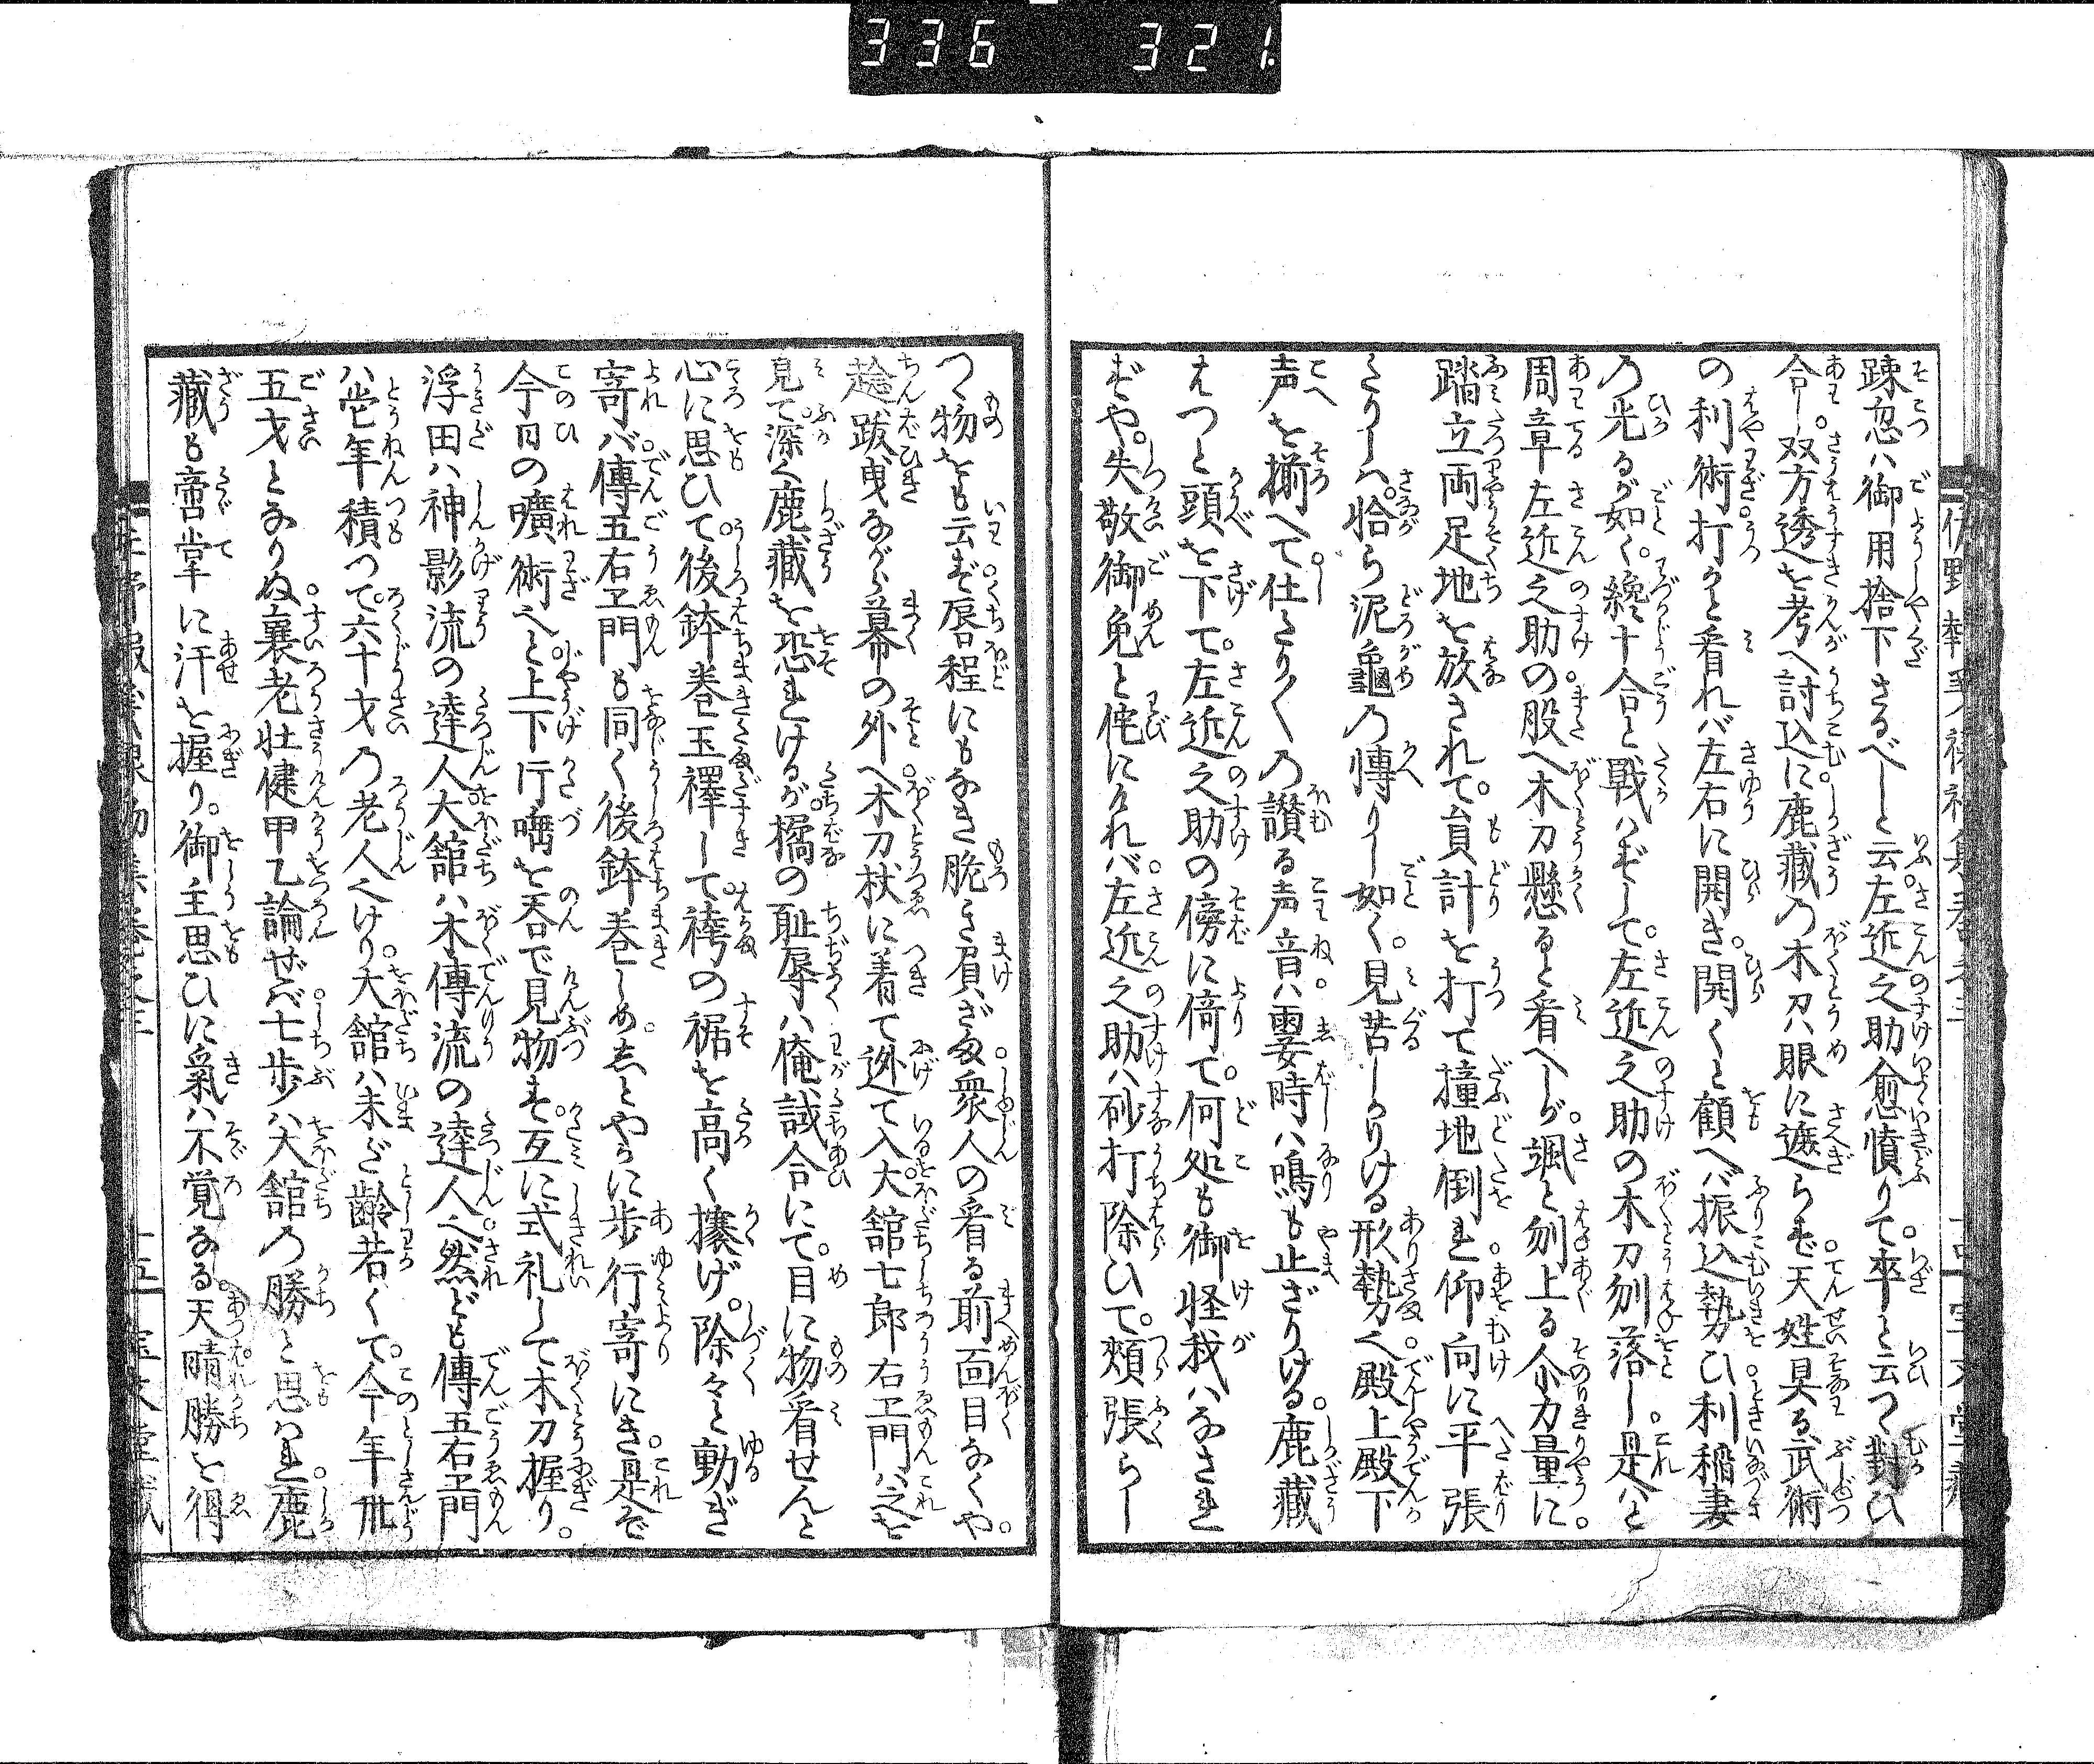 336 321.
踈忽ハ御用捨下さるべしと云左近之助愈憤りて卒と云つゝ對ひ
合し。双方透を考へ討込に鹿藏乃木刀ハ眼に遮らず天姓具る武術
の利術打かと看れバ左右に開き。開くと顧へバ振込勢ひ利稲妻
乃光るが如く。纔十合と戦ハずして。左近之助の木刀刎落し是ハと
周章左近之助の股へ木刀懸ると看へしが。颯と刎上る介力量に。
踏立両足地を放されて。員計を打て撞地倒れ仰向に平張
たりしハ。恰ら泥龜乃慱りし如く。見苦しかりける形勢へ殿上殿下
声を揃へて仕たり〱乃讃る声音ハ霎時ハ鳴も止ざりける。鹿藏
はつと頭を下て。左近之助の傍に倚て。何処も御怪我ハなされ
ずや。失敬御免と侘にけれバ左近之助ハ砂打除ひて。頬張らし
つゝ物をも云ず唇程にもなき脆き負ざま衆人の看る前面目なくや。
趁跋曳ながら幕の外へ木刀杖に着て迯て入大舘七郎右エ門ハ之を
見て深く鹿藏を恐れけるが。橘の耻辱ハ俺試合にて。目に物看せんと
心に思ひて後鉢巻玉襷して。袴の裾を高く攘げ。除々と動ぎ
寄バ傳五右エ門も同く後鉢巻しめ。しとやかに歩行寄にき是ぞ
今日の曠術へと上下行唾を呑で見物す。互に式礼して木刀握り。
浮田ハ神影流の達人大舘ハ木傳流の達人へ然ども傳五右エ門
ハ當年積つて六十才乃老人へけり。大舘ハ未ど齢若くて。今年卅
五才となりぬ衰老壮健甲乙論ぜバ七歩ハ大舘乃勝と思はれ鹿
藏も啻掌に汗を握り。御主思ひに氣ハ不覚なる。天晴勝を得